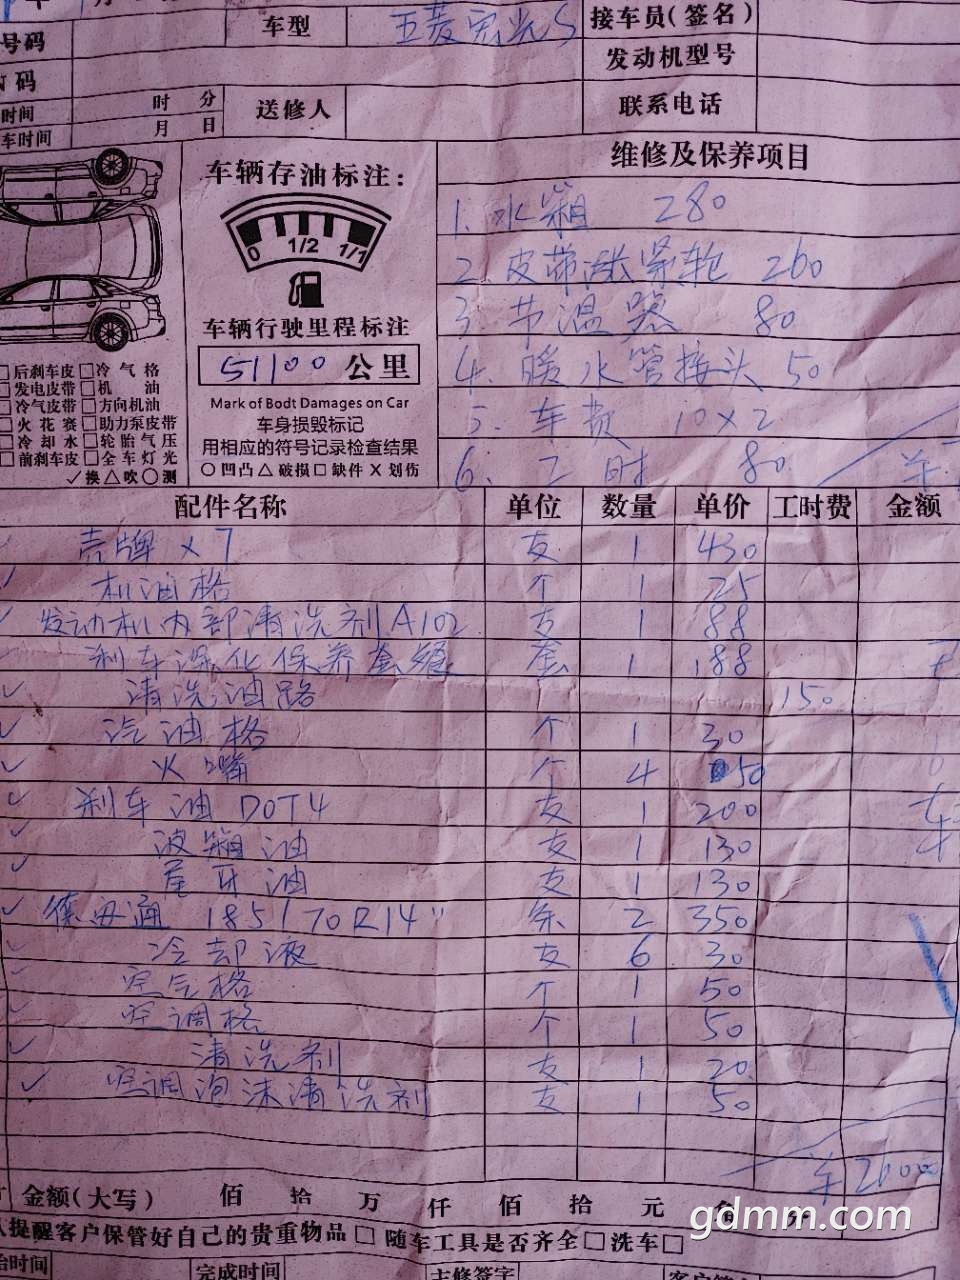 号码
车型 五菱宏光S 接车员(签名)
码
发动机型号
时间 时 分
送修人 联系电话
车时间 月 日
车辆存油标注:
0 1/2 1/1
车辆行驶里程标注
51100 公里
Mark of Bodt Damages on Car
车身损毁标记
用相应的符号记录检查结果
○凹凸△破损□缺件X划伤
□后刹车皮□冷气格
□发电皮带□机油
□冷气皮带□方向机油
□火花赛□助力泵皮带
□冷却水□轮胎气压
□前刹车皮□全车灯光
✓换△吹○测
维修及保养项目
1. 水箱 280
2. 皮带涨紧轮 260
3. 节温器 80
4. 暖水管接头 50
5. 车费 10×2
6. 工时 80
配件名称 单位 数量 单价 工时费 金额
壳牌×7 支 1 430
✓ 机油格 个 1 25
✓ 发动机内部清洗剂A102 支 1 88
刹车深化保养套餐 套 1 188
✓ 清洗油路 150
✓ 汽油格 个 1 30
✓ 火嘴 个 4 50
✓ 刹车油 DOT4 支 1 200
✓ 波箱油 支 1 130
✓ 尾牙油 支 1 130
✓ 德毋通 185/70R14" 条 2 350
✓ 冷却液 支 6 30
✓ 空气格 个 1 50
✓ 空调格 个 1 50
✓ 清洗剂 支 1 20
✓ 空调泡沫清洗剂 支 1 50
金额(大写) 佰 拾 万 仟 佰 拾 元
提醒客户保管好自己的贵重物品□ 随车工具是否齐全□洗车□
始时间 完成时间 主修签字
gdmm.com